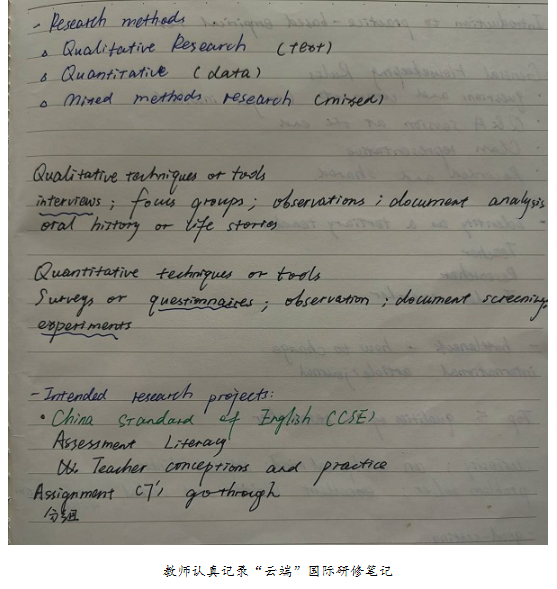 - Research methods.
Qualitative Research (text)
Quantitative (data)
Mixed methods research (mixed)
Qualitative techniques or tools
interviews; focus groups; observations; document analysis
oral history or life stories
Quantitative techniques or tools
Surveys or questionnaires; observation; document screening.
experiments
- Intended research projects:
• China Standard of English (CSE)
Assessment Literacy
Teacher conceptions and practice
Assignment go through
分组
教师认真记录“云端”国际研修笔记